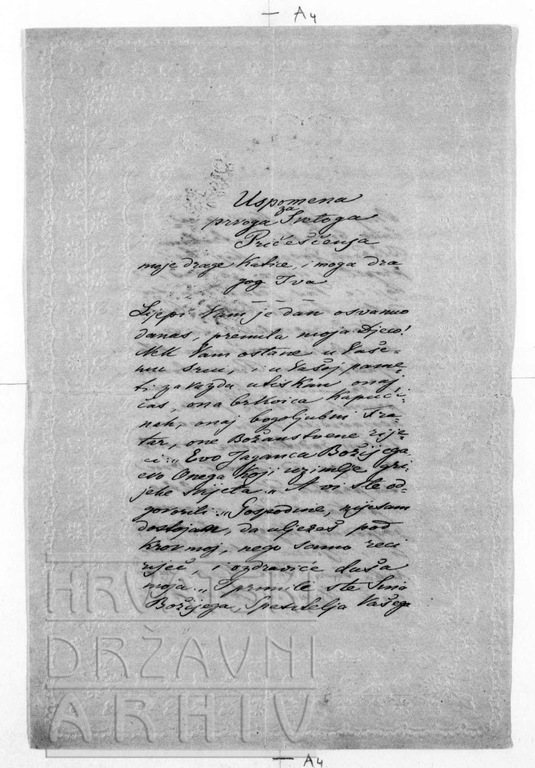 A4
Uspomena
za
prvoga Svetoga
Pričešćenja
moje drage Katice, i moga dra
gog Iva
Lijepi Vam je dan osvanuo
danas, premila moja Djeco!
Nek Vam ostane u Vaše-
mu srcu, i u Vašoj pame-
ti zavazda utiskan onaj
čas, ona crkvica Kapuci-
nah, onaj bogoljubni
one Božanstvene rije-
ci: „Evo Jaganca Božijega
evo Onega Koji uzimlje gri-
jehe svijeta." A vi ste od-
govorili: „Gospodine, nijesam
dostojan, da uljezeš pod
krov moj, nego samo reci
riječ, i ozdraviće duša
moja." I primili ste Sina
Božijega, Spasitelja Vašega
HRVATSKI
DRŽAVNI
ARHIV
A4